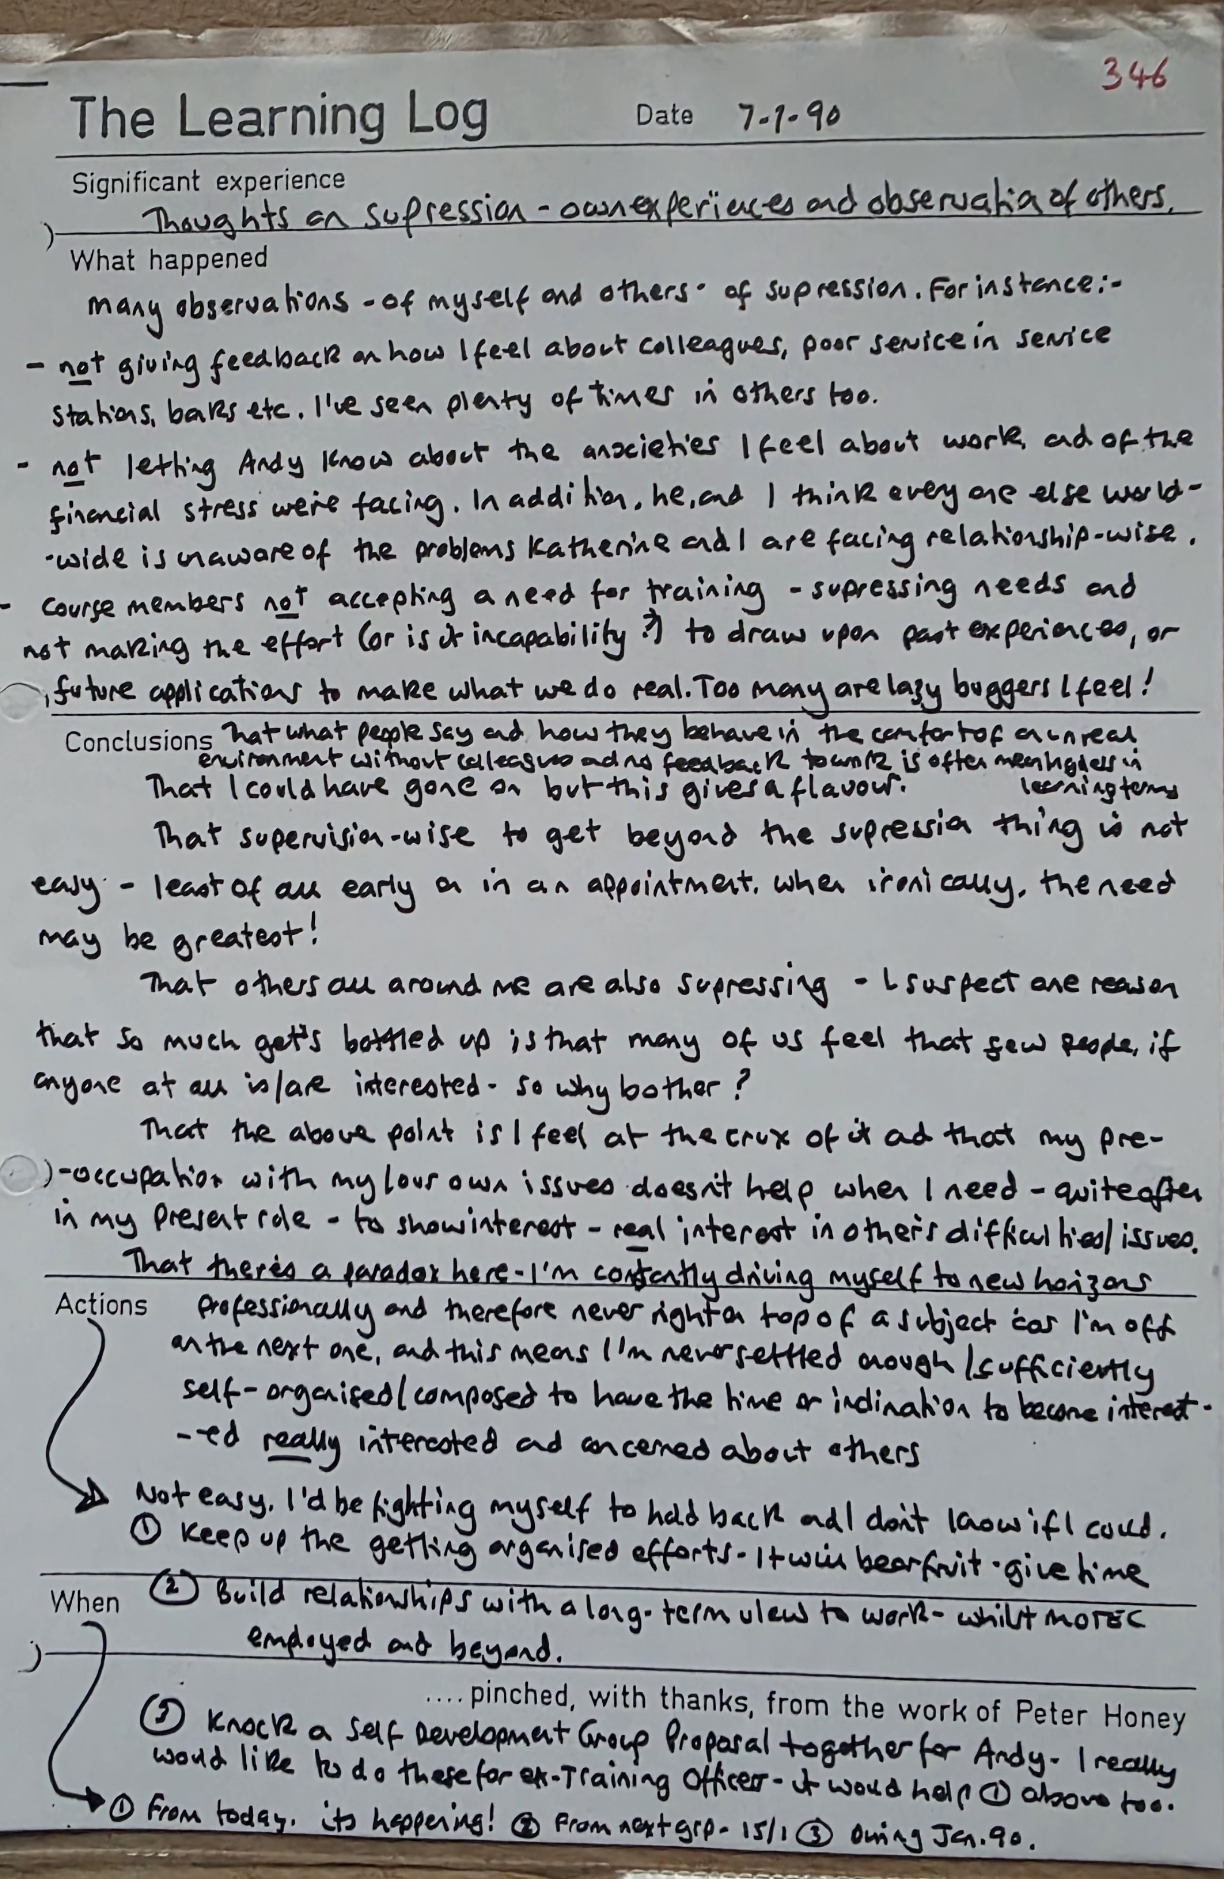 346
The Learning Log Date 7-1-90
Significant experience
Thoughts on supression - own experiences and observation of others.
What happened
Many observations - of myself and others - of supression. For instance:-
- not giving feedback on how I feel about colleagues, poor service in service
stations, bars etc. I've seen plenty of times in others too.
- not letting Andy know about the anxieties I feel about work, and of the
financial stress we're facing. In addition, he, and I think everyone else world-
-wide is unaware of the problems Katherine and I are facing relationship-wise.
- course members not accepting a need for training - supressing needs and
not making the effort (or is it incapability?) to draw upon past experiences, or
future applications to make what we do real. Too many are lazy buggers I feel!
Conclusions That what people say and how they behave in the comfort of an unreal
environment without colleagues and no feedback to work is often meaningless in
learning terms
That I could have gone on but this gives a flavour.
That supervision-wise to get beyond the supression thing is not
easy - least of all early on in an appointment. when ironically, the need
may be greatest!
That others all around me are also supressing - I suspect one reason
that so much get's bottled up is that many of us feel that few people, if
anyone at all is/are interested - so why bother?
That the above point is I feel at the crux of it and that my pre-
-occupation with my own issues doesn't help when I need - quite often
in my present role - to show interest - real interest in other's difficulties/issues.
That there's a paradox here - I'm constantly driving myself to new horizons
Actions professionally and therefore never right on top of a subject 'cos I'm off
on the next one, and this means I'm never settled enough/sufficiently
self-organised/composed to have the time or inclination to become interest-
-ed really interested and concerned about others
Not easy. I'd be fighting myself to hold back and I don't know if I could.
① Keep up the getting organised efforts - It will bear fruit - give time
When ② Build relationships with a long-term view to work - whilst MOTEC
employed and beyond.
.... pinched, with thanks, from the work of Peter Honey
③ Knock a Self Development Group Proposal together for Andy - I really
would like to do these for ex-Training Officer - it would help ① above too.
① From today. its happening! ② From next grp - 15/1 ③ During Jan. 90.